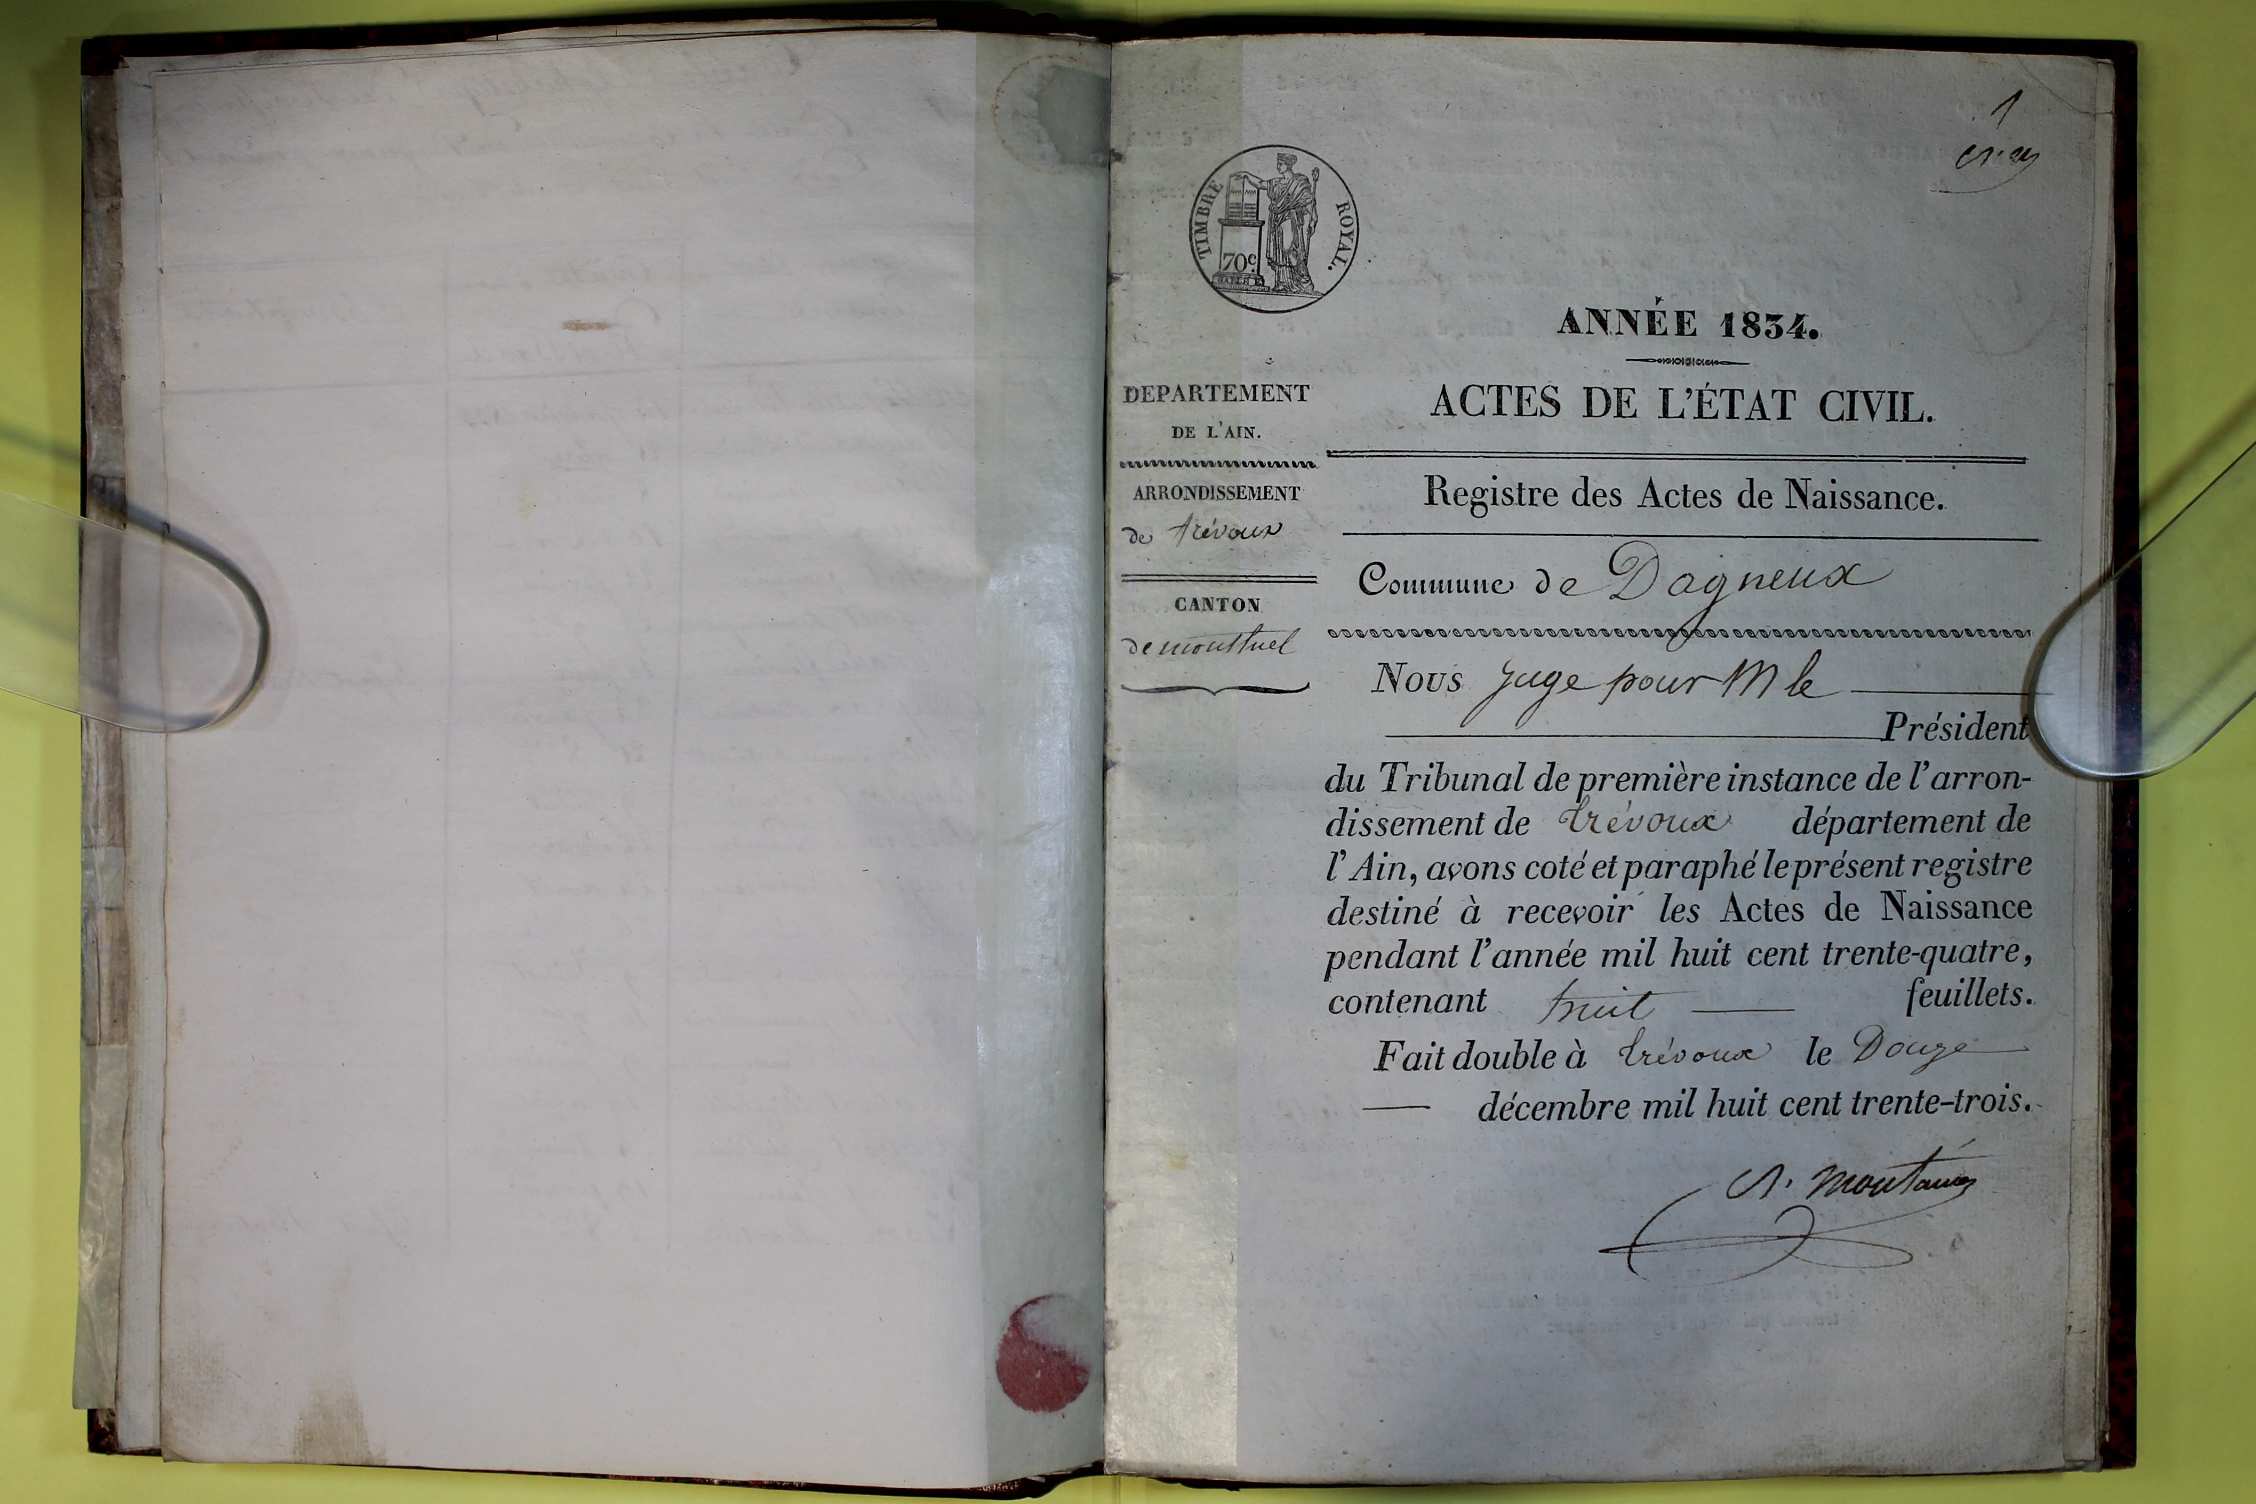 1
TIMBRE ROYAL.
70c
ANNÉE 1834.
ACTES DE L'ÉTAT CIVIL.
DEPARTEMENT
DE L'AIN.
ARRONDISSEMENT
de trévoux
CANTON
de montluel
Registre des Actes de Naissance.
Commune de Dagneux
Nous Juge pour M le
Président
du Tribunal de première instance de l'arron-
dissement de trévoux département de
l'Ain, avons coté et paraphé le présent registre
destiné à recevoir les Actes de Naissance
pendant l'année mil huit cent trente-quatre,
contenant huit feuillets.
Fait double à trévoux le Douze
décembre mil huit cent trente-trois.